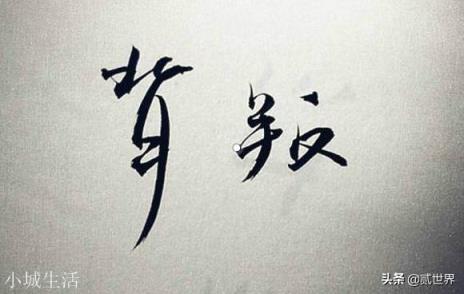 背叛
小城生活
头条 @贰世界